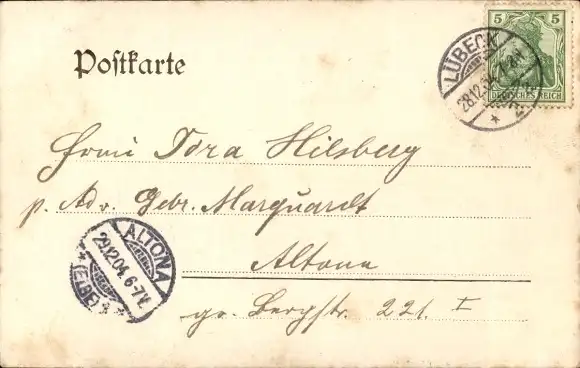 Postkarte
5 5
DEUTSCHES REICH
LÜBECK
28.12.04
Frau Dora Hilsberg
p. Adr. Gebr. Marquardt
Altona
gr. Bergstr. 221. I
ALTONA
29.12.04. 6-7V.
* (ELBE) *